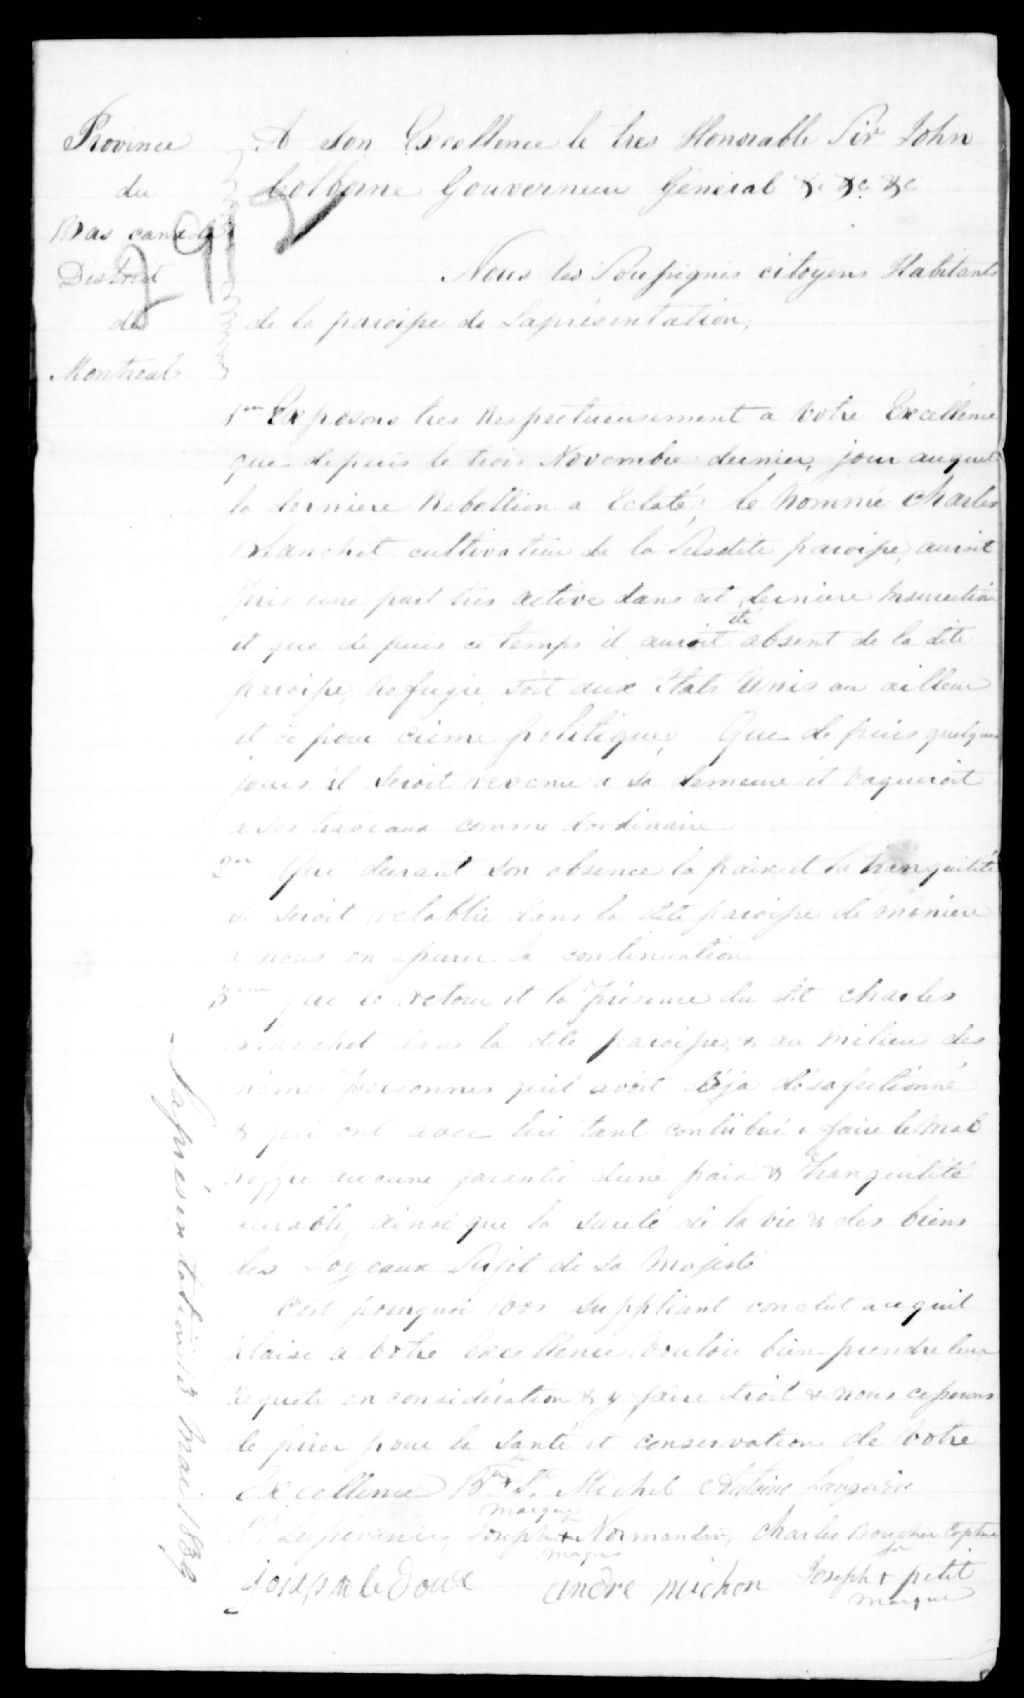 Province
du
Bas canada
District
de
Montreal
2912
A Son Excellence le tres Honorable Sir John
Colborne Gouverneur Général &c &c &c
Nous les Soussignés citoyens Habitants
de la paroisse de Laprésentation,
1er Exposons tres Respectueusement a votre Excellence
que depuis le trois Novembre dernier, jour auquel
la derniere Rebellion a Eclaté, le Nommé Charles
Blanchet cultivateur de la Susdite paroisse, auroit
pris une part tres active dans cet derniere insurection
et que depuis ce temps il auroit été absent de la dite
paroisse, Refugié soit aux Etats Unis ou ailleur
et ce pour crime politique, Que depuis quelques
jours il seroit revenu a sa demeure et vaqueroit
a ses traveaux comme dordinaire
2em Que durant son absence la paix et la tranquilité
se seroit rétablie dans la dite paroisse de maniere
a nous en la continuation
3em que le retour et la présence du dit Charles
Blanchet dans la dite paroisse, & au milieu des
mêmes personnes quil avoit déja désafectionné
& qui ont avec lui tant contribué a faire le mal
noffre aucune garantie dune paix & tranquilité
durable, ainsi que la sureté de la vie & des biens
des Loyeaux Sujet de sa Majesté
Cest pourquoi vos suppliant conclut a ce quil
plaise a votre Excellence vouloir bien prendre leur
Requete en considération & y faire droit & nous cesserons
de prier pour la santé et conservation de Votre
Excellence Bte St Michel Antoine Langevin
Lespérance, Joseph + Normandin, Charles Boucher Captne
marque
joseph ledoux andré michon Joseph + petit
marque
Laprésentation 13 Mai 1839